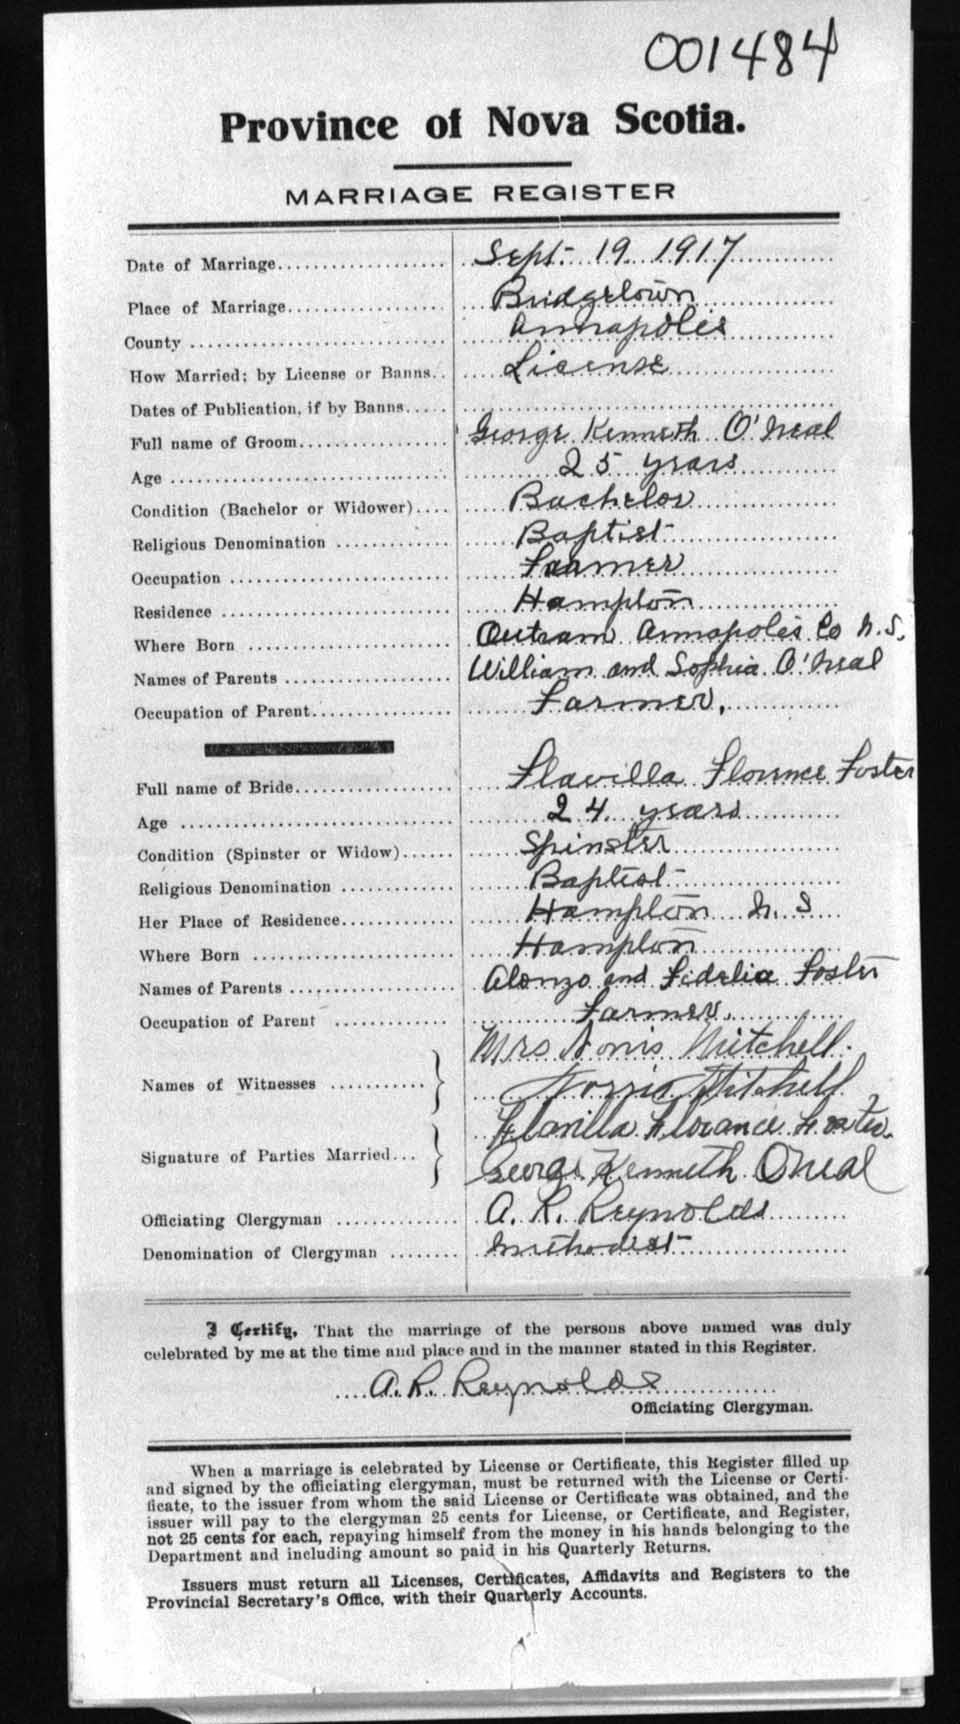 001484
Province of Nova Scotia.
MARRIAGE REGISTER
Date of Marriage Sept. 19. 1917
Place of Marriage Bridgetown
County Annapolis
How Married; by License or Banns License
Dates of Publication, if by Banns
Full name of Groom George Kenneth O'Neal
Age 25 years
Condition (Bachelor or Widower) Bachelor
Religious Denomination Baptist
Occupation Farmer
Residence Hampton
Where Born Outram Annapolis Co N.S.
Names of Parents William and Sophia O'Neal
Occupation of Parent Farmer.
Full name of Bride Flavilla Florence Foster
Age 24 years
Condition (Spinster or Widow) Spinster
Religious Denomination Baptist
Her Place of Residence Hampton N. S
Where Born Hampton
Names of Parents Alonzo and Fidelia Foster
Occupation of Parent Farmer.
Names of Witnesses } Mrs Norris Mitchell.
Norris Mitchell
Signature of Parties Married } Flavilla Florance Foster.
George Kenneth ONeal
Officiating Clergyman A. R. Reynolds
Denomination of Clergyman Methodist
I Certify, That the marriage of the persons above named was duly
celebrated by me at the time and place and in the manner stated in this Register.
A. R. Reynolds
Officiating Clergyman.
When a marriage is celebrated by License or Certificate, this Register filled up
and signed by the officiating clergyman, must be returned with the License or Certi-
ficate, to the issuer from whom the said License or Certificate was obtained, and the
issuer will pay to the clergyman 25 cents for License, or Certificate, and Register,
not 25 cents for each, repaying himself from the money in his hands belonging to the
Department and including amount so paid in his Quarterly Returns.
Issuers must return all Licenses, Certificates, Affidavits and Registers to the
Provincial Secretary's Office, with their Quarterly Accounts.